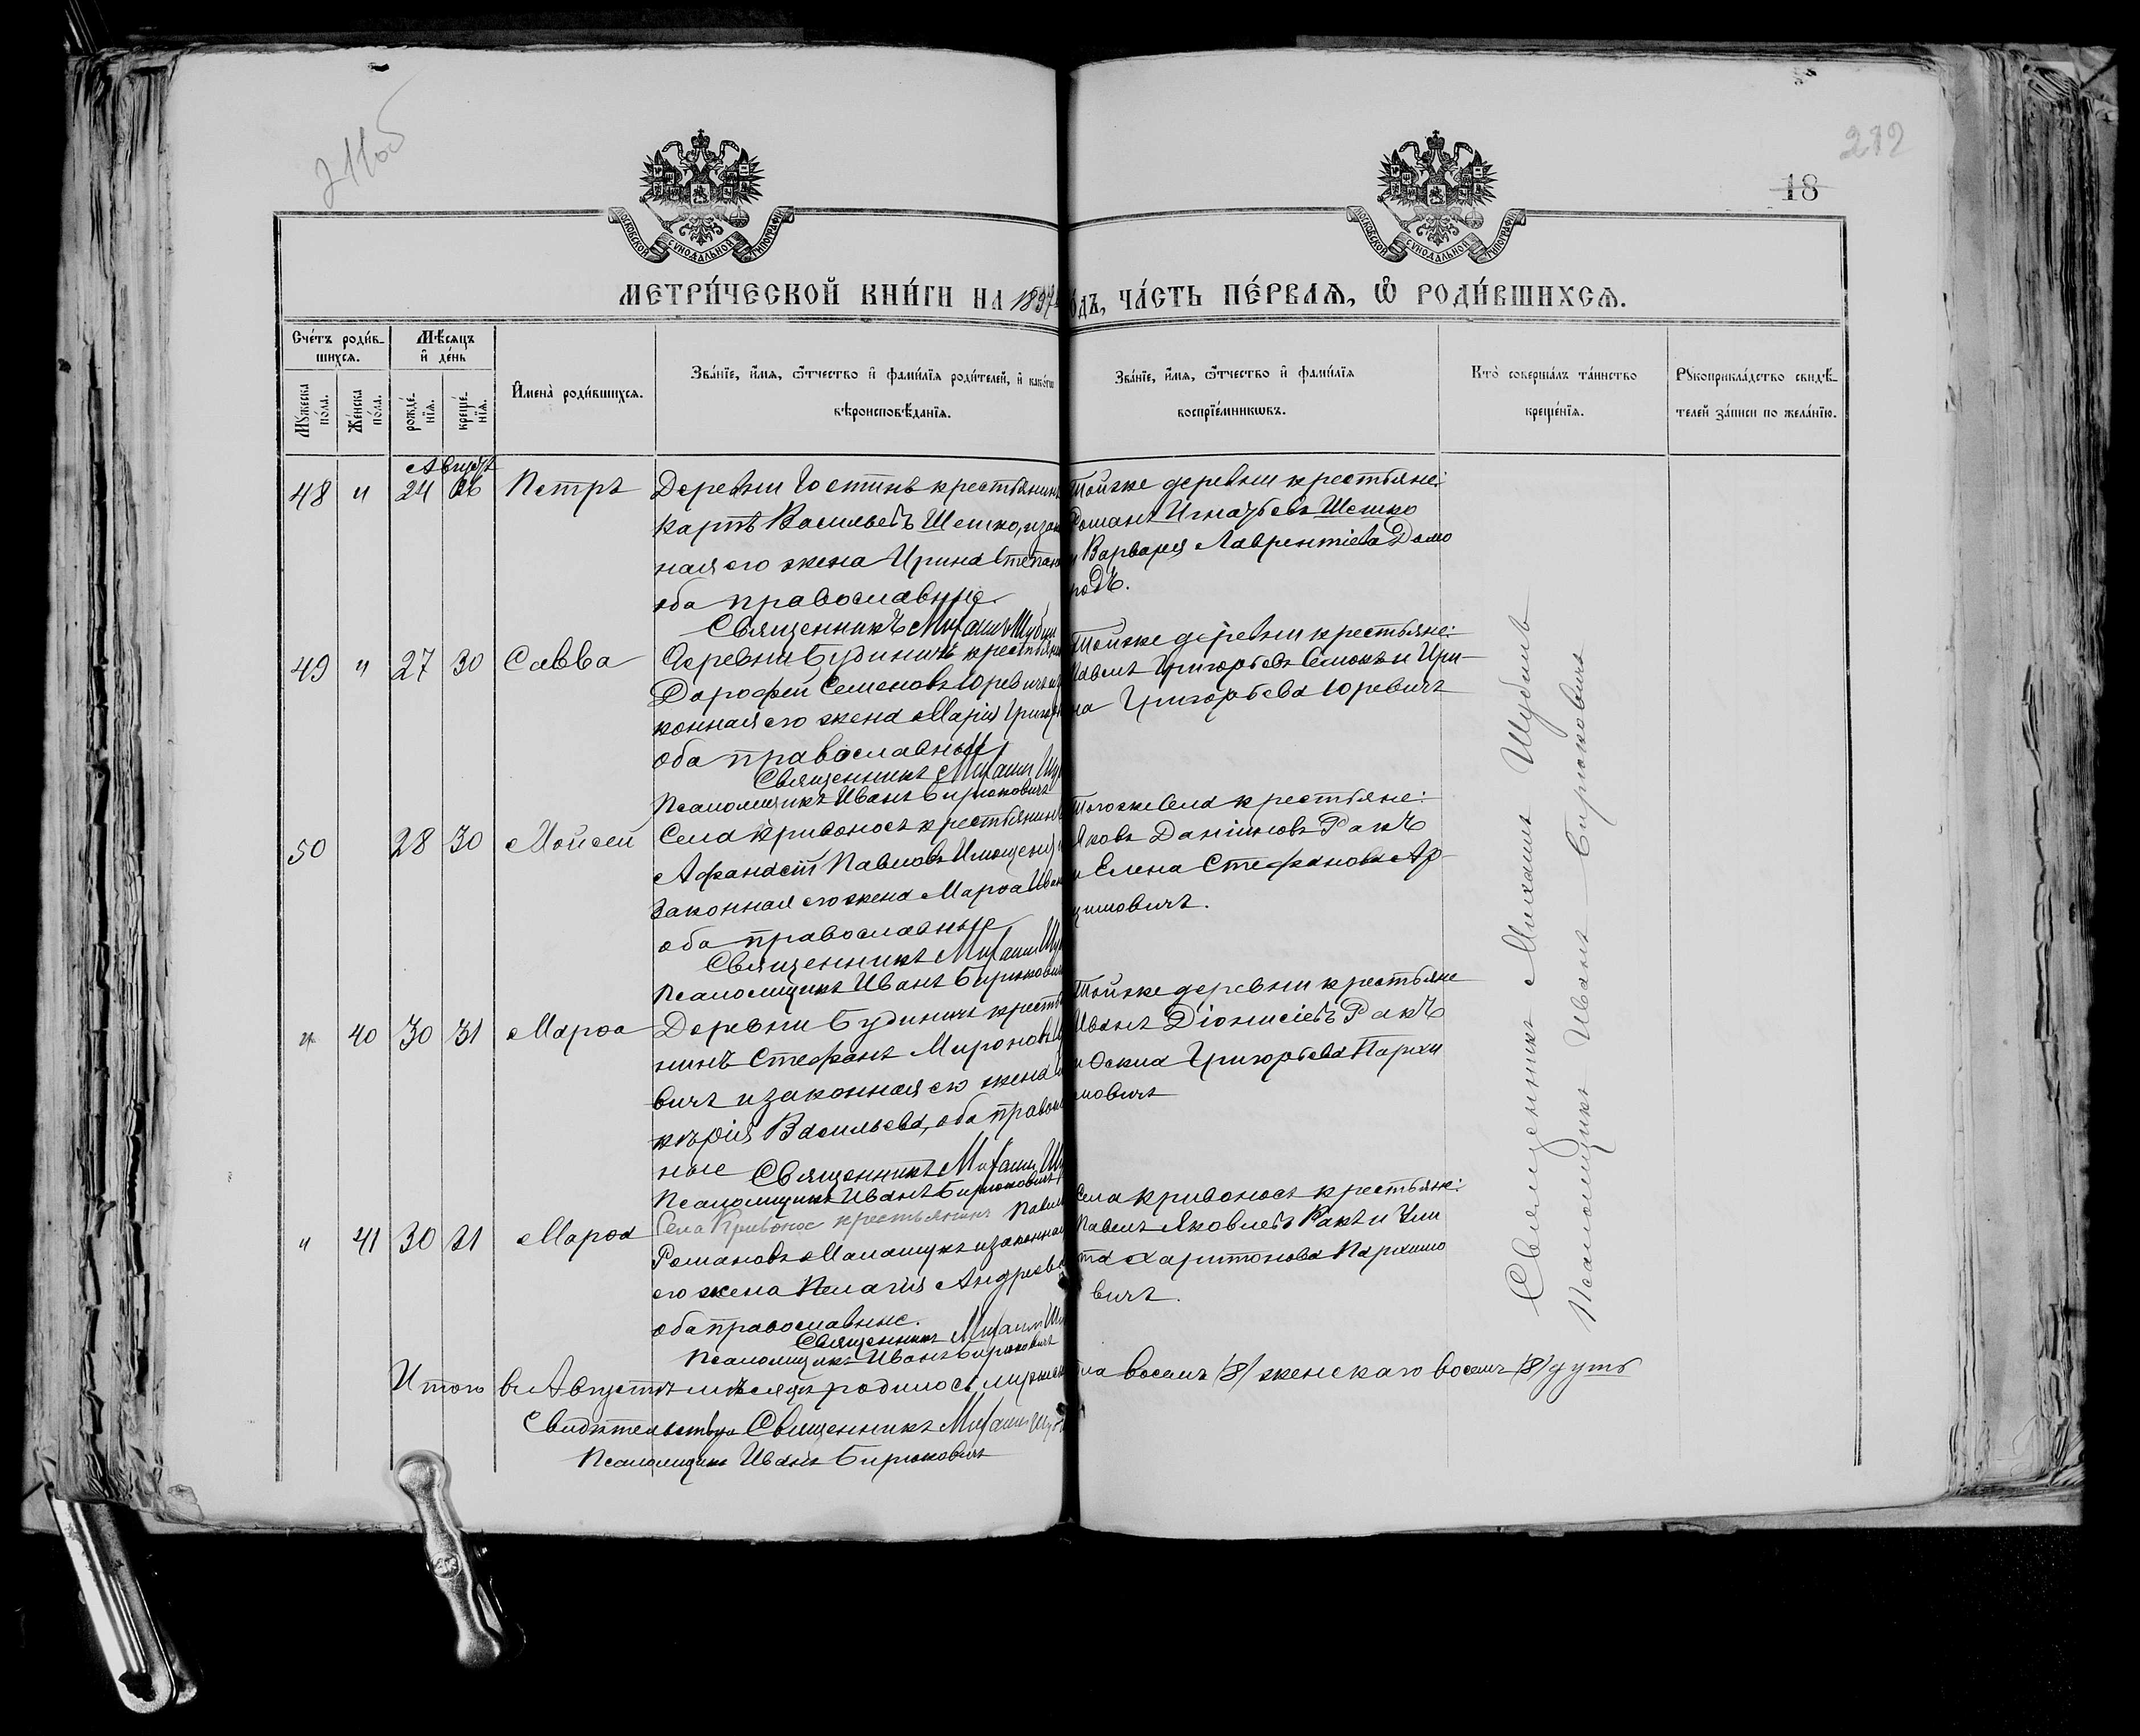 211об
212
18
МОСКОВСКОЙ СѴНОДАЛЬНОЙ ТИПОГРАФІИ
МОСКОВСКОЙ СѴНОДАЛЬНОЙ ТИПОГРАФІИ
МЕТРИ́ЧЕСКОЙ КНИ́ГИ НА 1897 го́дъ, ЧА́СТЬ ПЕ́РВАЯ, Ѡ РОДИ́ВШИХСЯ.
Сче́тъ роди́в-
шихся.
Мѣсяцъ
и҆ де́нь
Му́жеска по́ла.
Же́нска по́ла.
рожде́-
нїя.
креще́-
нїя.
И҆мена̀ роди́вшихся.
Зва́нїе, и҆́мя, ѻ҆́тчество и҆ фами́лїя роди́телей, и҆ како́гѡ
вѣроисповѣ́данїя.
Зва́нїе, и҆́мя, ѻ҆́тчество и҆ фами́лїя
воспрїе́мникѡвъ.
Кто̀ соверша́лъ та́инство
креще́нїя.
Рꙋкоприкла́дство свидѣ́-
телей за́писи по жела́нїю.
Августъ
48 " 24 26 Петръ
Деревни Гостинь крестьянинъ
Карпъ Васильевъ Шешко, и зако
ная его жена Ирина Степан
оба православные.
Священникъ Михаилъ Шубин
Той же деревни крестьяне:
Романъ Игнатьевъ Шешко
и Варвара Лаврентіева Домо
родъ.
49 " 27 30 Савва
Деревни Будиничъ крестьян
Дорофей Семеновъ Юревичъ и за
конная его жена Марія Григор
оба православные
Священникъ Михаилъ Шу
Псаломщикъ Иванъ Бирюковичъ
Той же деревни крестьяне:
Павелъ Григорьевъ и Ири-
на Григорьева Юревичъ
50 28 30 Мойсей
Села Кривоносъ крестьянинъ
Афанасій Павловъ и
законная его жена Марѳа Иван
оба православные
Священникъ Михаилъ Шу
Псаломщикъ Иванъ Бирюкович
Того же села крестьяне:
Яковъ Даніиловъ Ракъ
и Елена Стефанова Ар-
цимовичъ.
" 40 30 31 Марѳа
Деревни Будиничъ кресть
нинъ Стефанъ Мироновъ
вичъ и законная его жена
Васильева, оба правосл
ные Священникъ Михаилъ Ш
Псаломщикъ Иванъ Бирюковичъ
Той же деревни крестьяне
Иванъ Діонисіевъ Ракъ
и Григорьева Пархи
мовичъ
" 41 30 31 Марѳа
Села Кривонос крестьянинъ Павел
Романовъ Малащукъ и законная
его жена Пелагія Андреева
оба православные.
Священникъ Михаилъ Шу
Псаломщикъ Иванъ Бирюковичъ
Села Кривоносъ крестьяне:
Павелъ Яковлевъ Ракъ и Ули
та Харитонова Пархимо
вичъ.
Священникъ Михаилъ Шубинъ
Псаломщикъ Иванъ Бирюковичъ
Итого въ Августѣ мѣсяцѣ родилось мужеска пола восемь /8/ женскаго восемь /8/ душъ
Священникъ Михаилъ Шуб
Псаломщикъ Иванъ Бирюковичъ